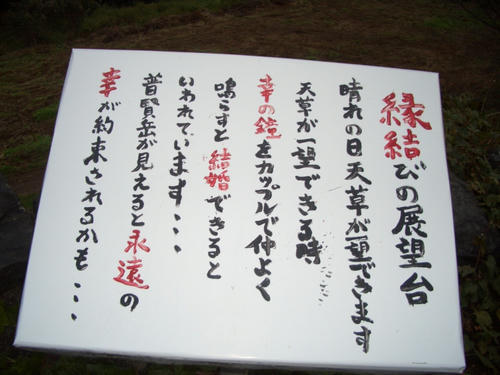 縁結びの展望台
晴れの日天草が一望できます
天草が一望できる時
幸の鐘をカップルで仲よく
鳴らすと結婚できると
いわれています・・・
普賢岳が見えると永遠の
幸が約束されるかも・・・